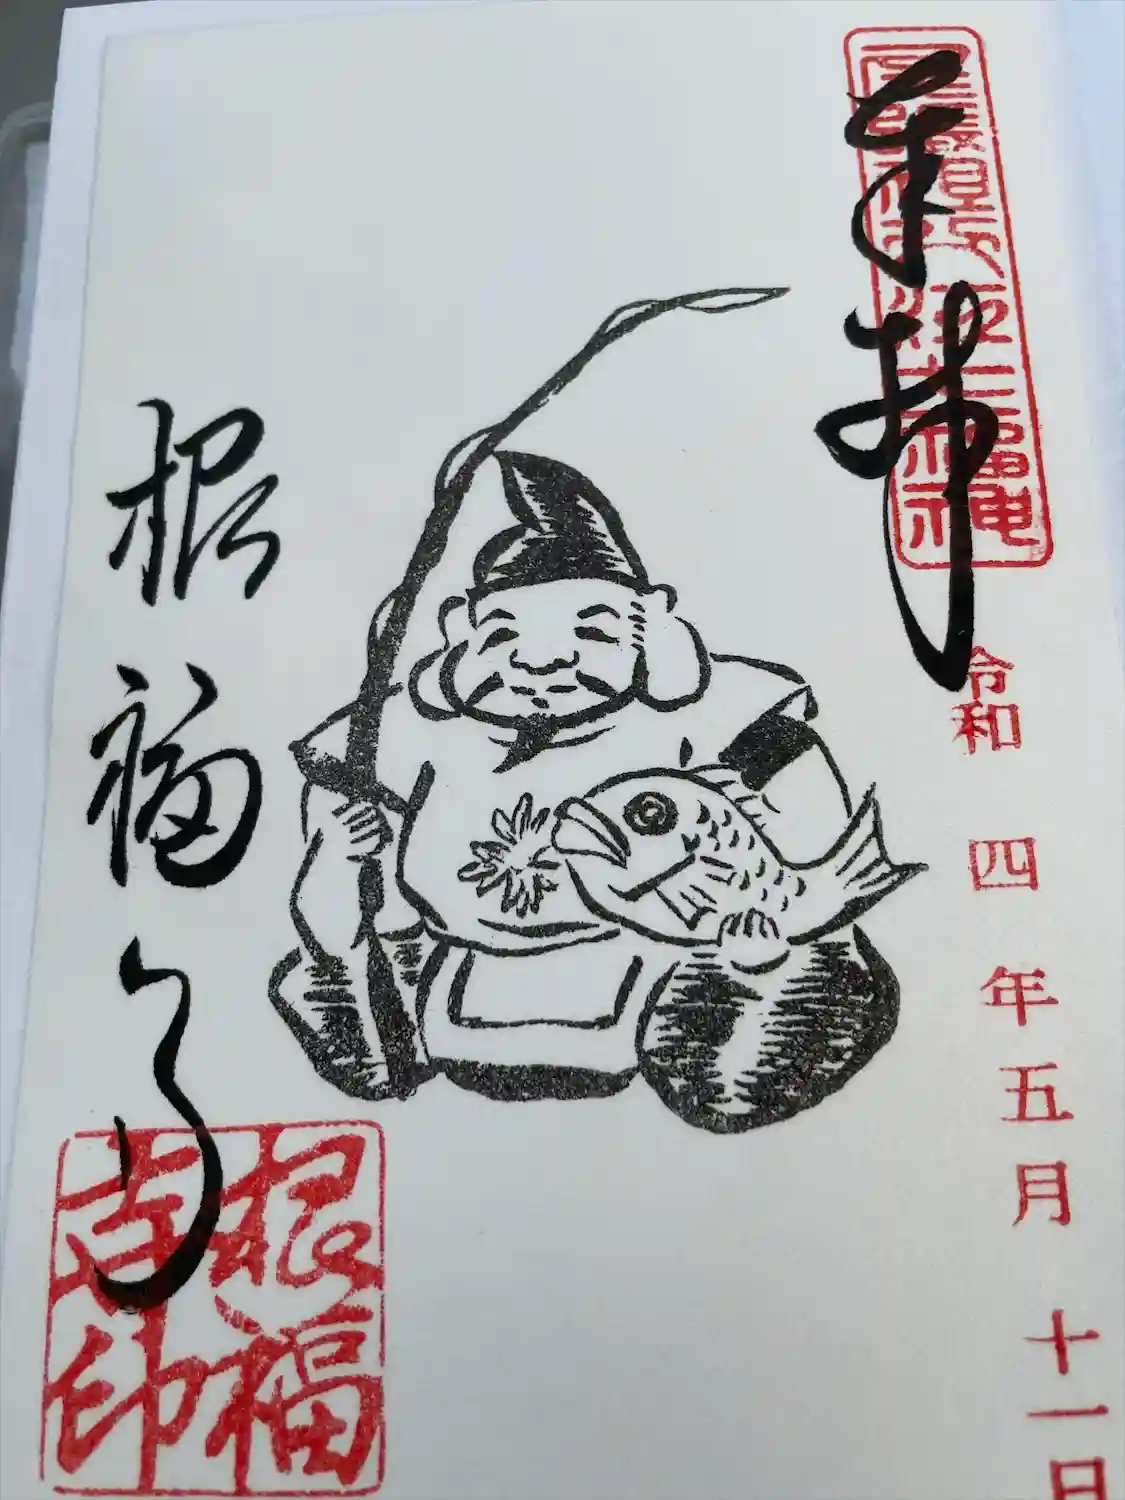 奉拝
令和四年五月十一日
根福寺
根福
寺印